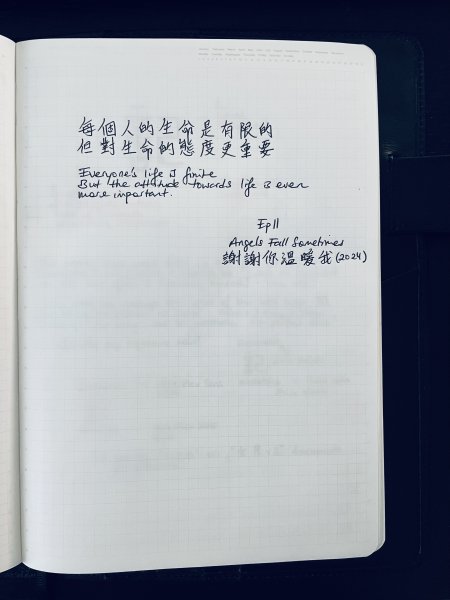 每個人的生命是有限的
但對生命的態度更重要
Everyone's life is finite
But the attitude towards life is even
more important.
Ep 11
Angels Fall Sometimes
謝謝你溫暖我 (2024)